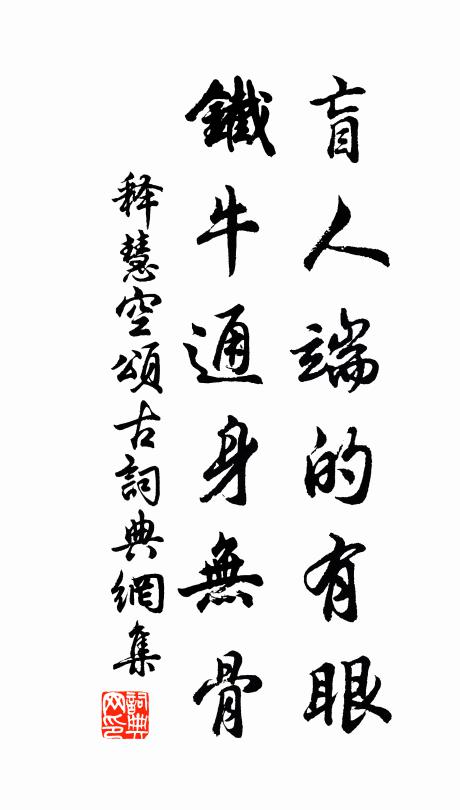 盲人端的有眼
鐵牛通身無骨
释慧空頌古詞典網集
詞典网印